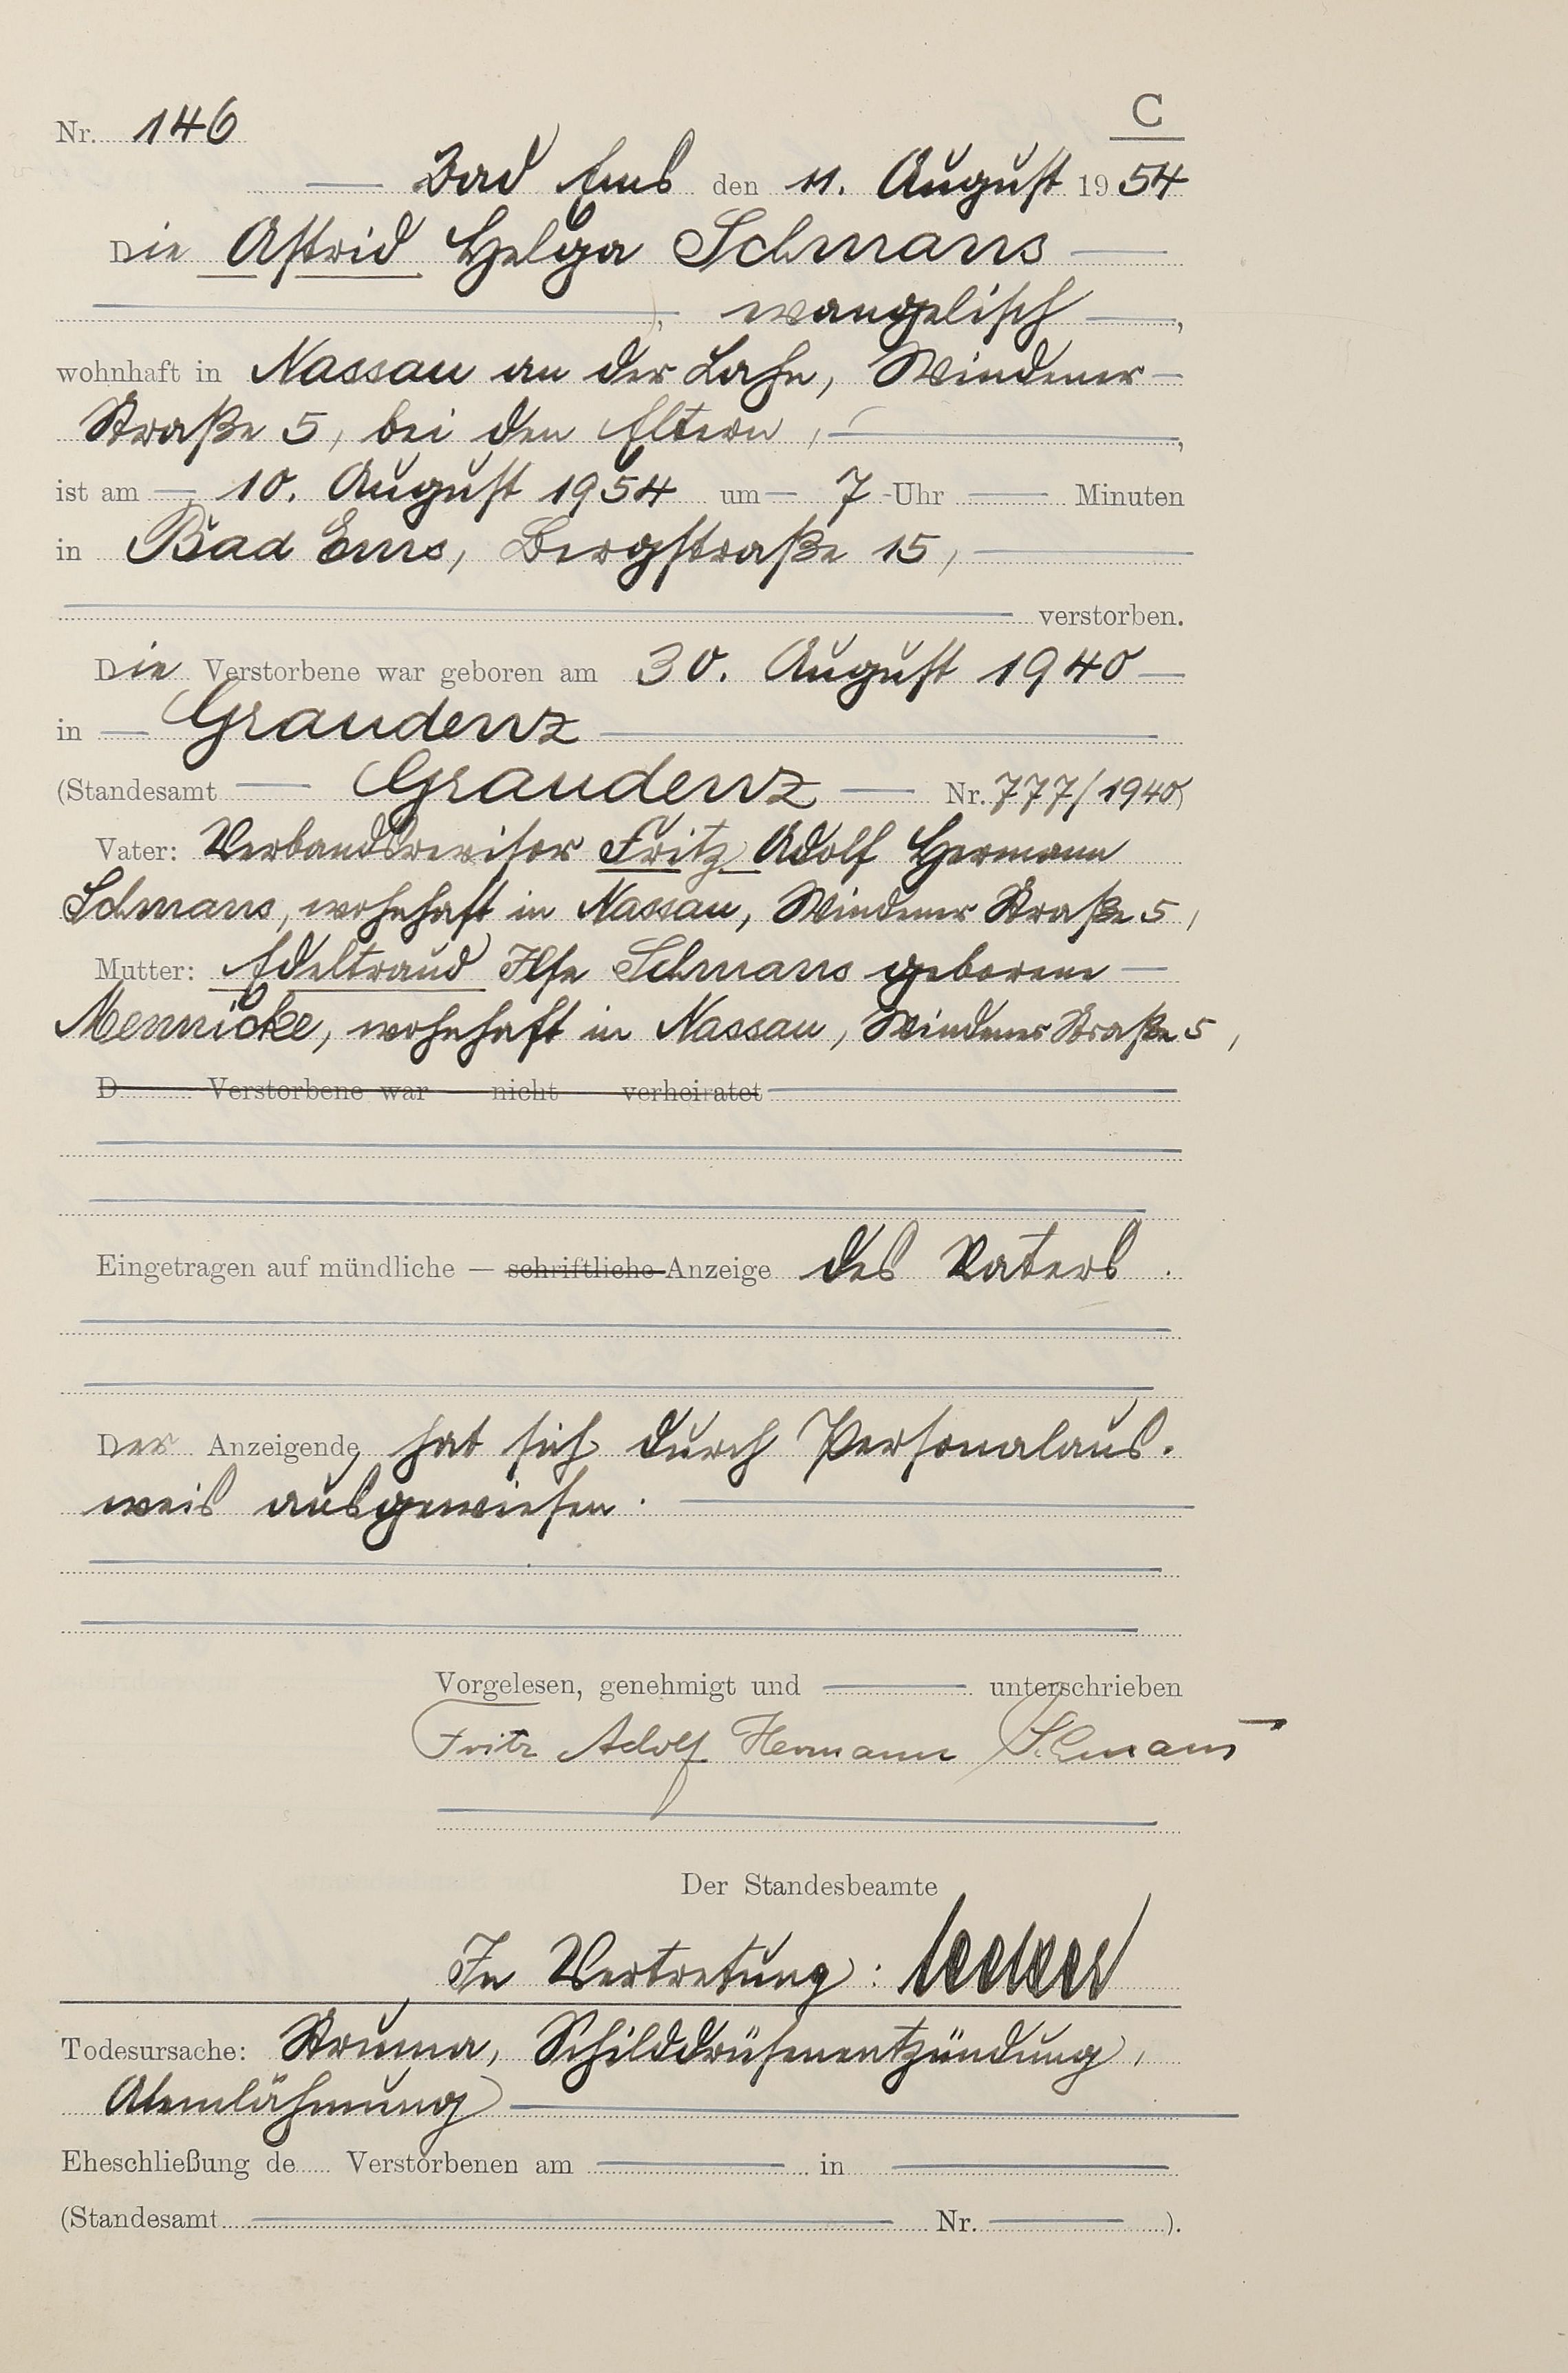 C
Nr. 146
Bad Ems den 11. August 1954
Die Astrid Helga Schmans
, evangelisch,
wohnhaft in Nassau an der Lahn, Windener
Straße 5, bei den Eltern,
ist am 10. August 1954 um 7 Uhr Minuten
in Bad Ems, Bergstraße 15,
verstorben.
Die Verstorbene war geboren am 30. August 1940
in Graudenz
(Standesamt Graudenz Nr. 777/1940)
Vater: Verbandsrevisor Fritz Adolf Hermann
Schmans, wohnhaft in Nassau, Windener Straße 5,
Mutter: Edeltraud Ilse Schmans geborene
Mennicke, wohnhaft in Nassau, Windener Straße 5,
D Verstorbene war nicht verheiratet
Eingetragen auf mündliche — schriftliche Anzeige des Vaters.
Der Anzeigende hat sich durch Personalaus-
weis ausgewiesen.
Vorgelesen, genehmigt und unterschrieben
Fritz Adolf Hermann Schmans
Der Standesbeamte
In Vertretung:
Todesursache: Struma, Schilddrüsenentzündung,
Atemlähmung
Eheschließung de Verstorbenen am in
(Standesamt Nr. ).